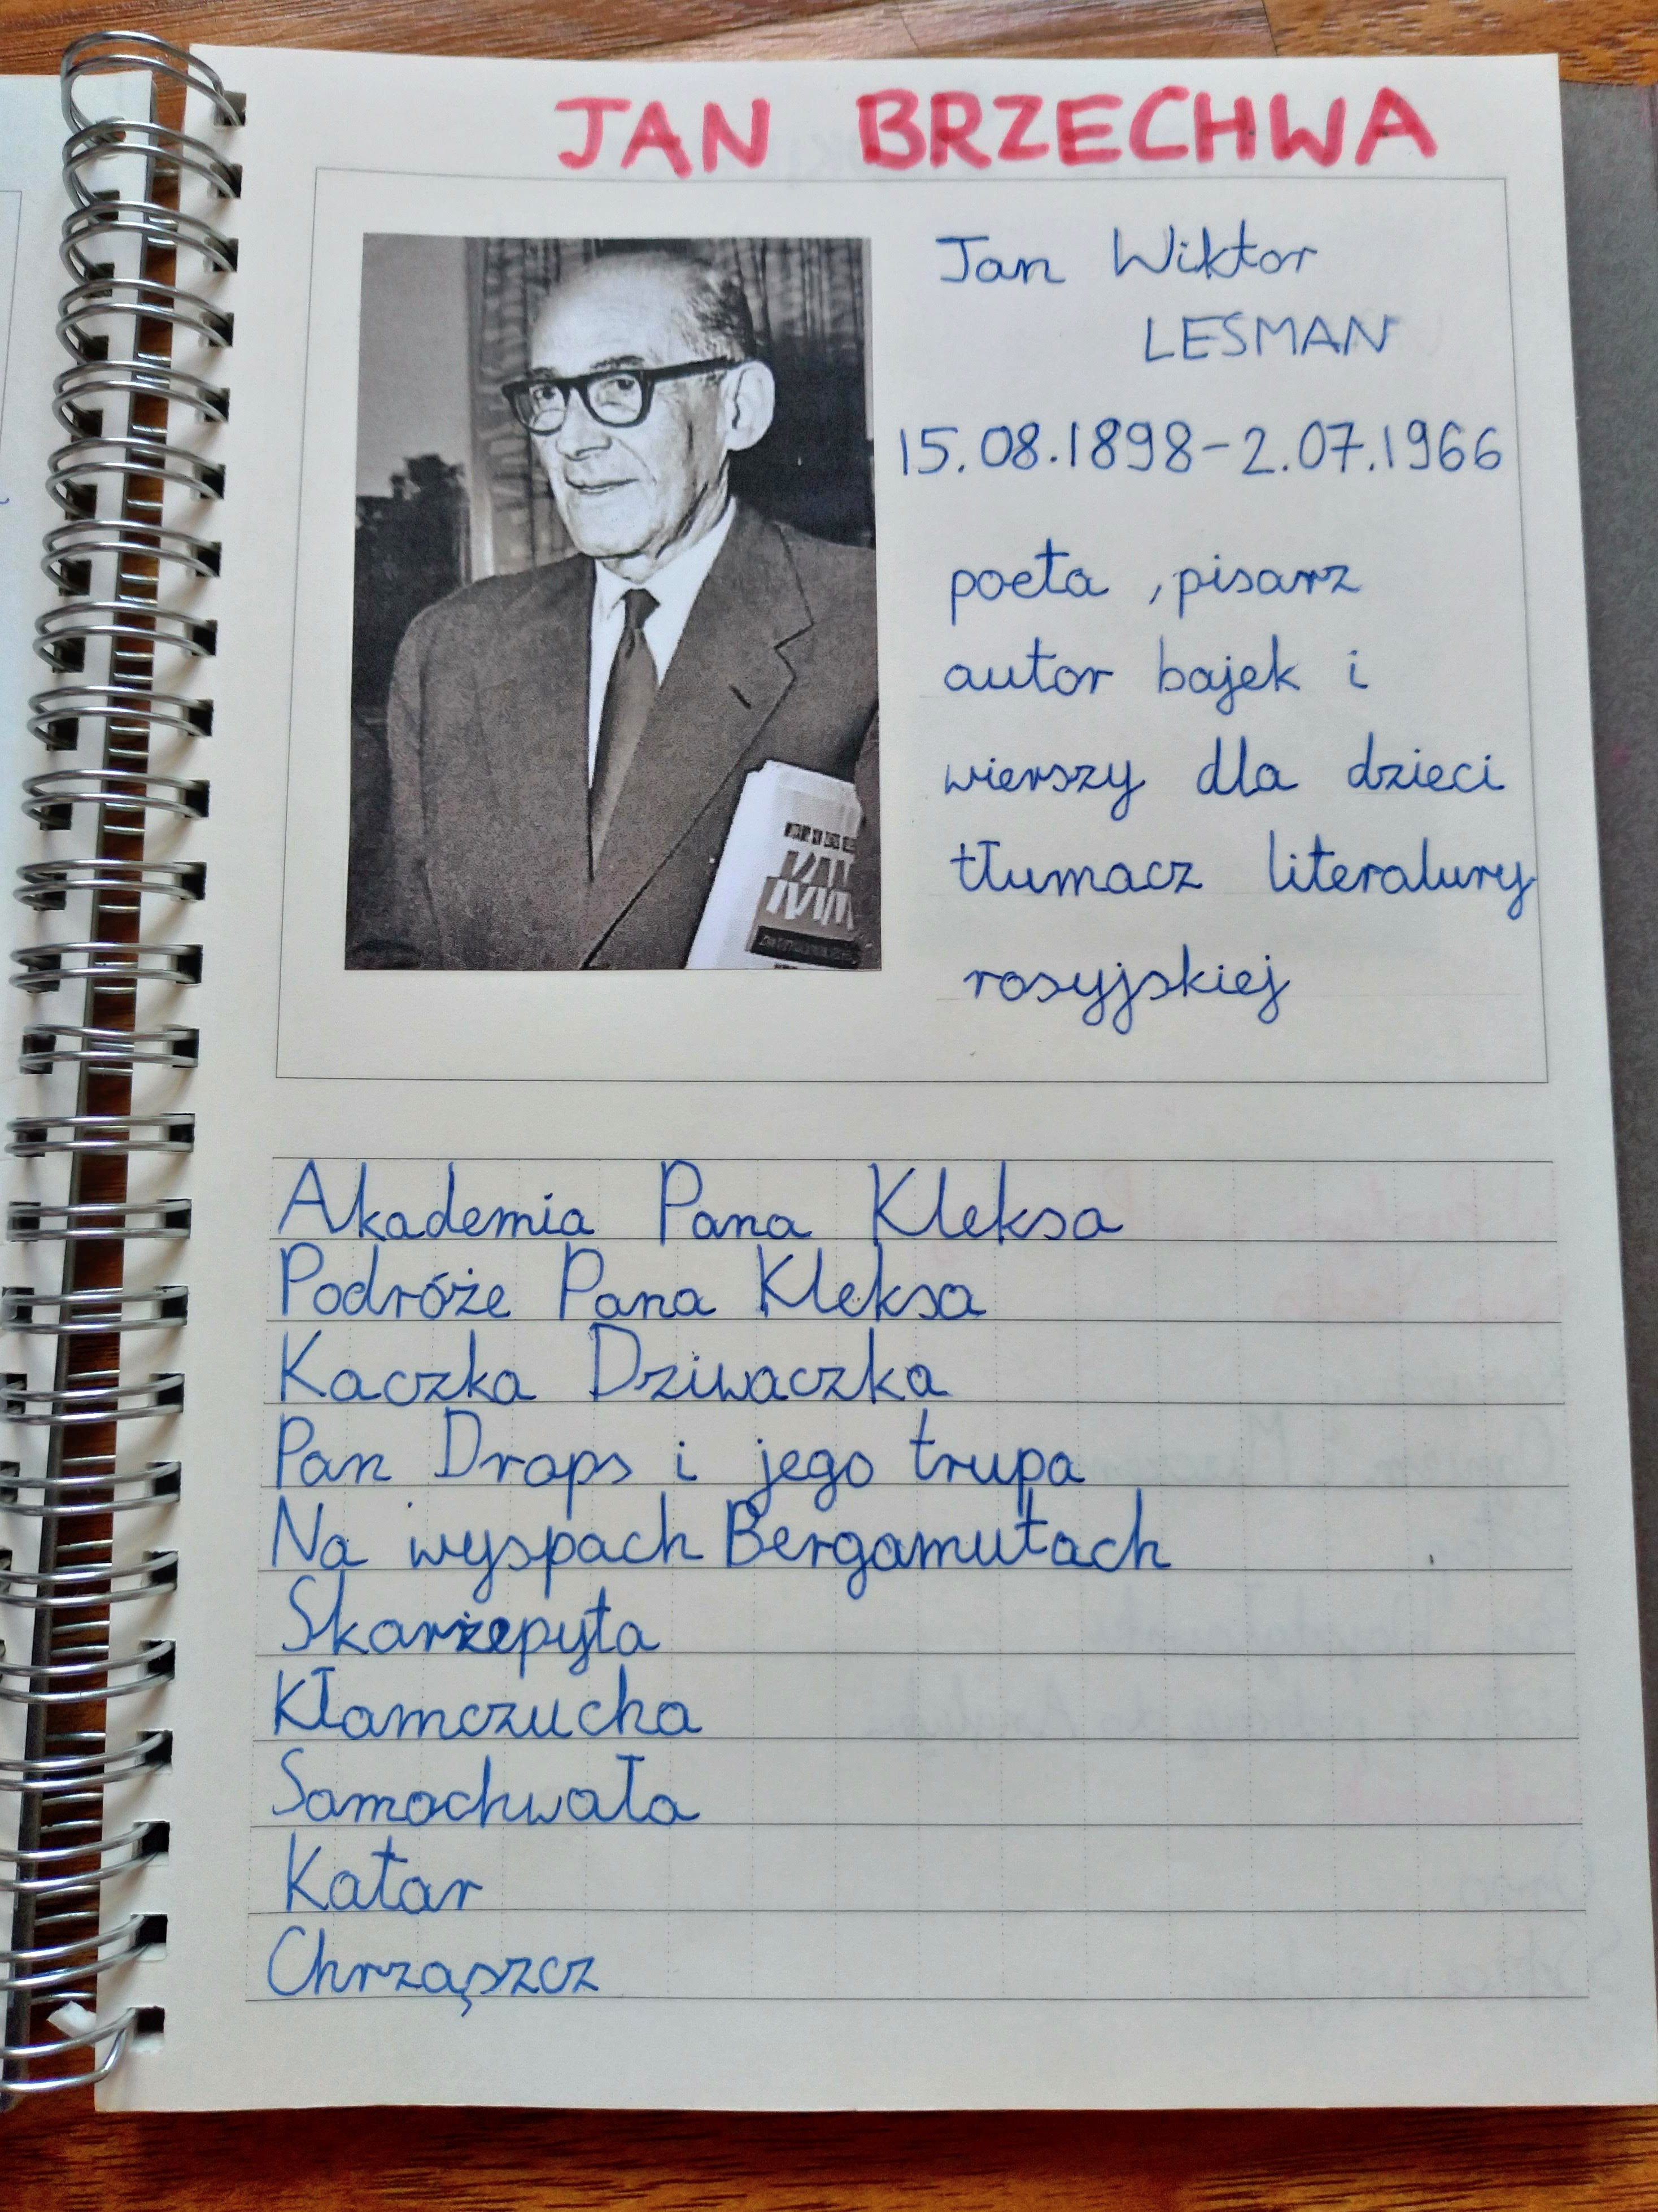 JAN BRZECHWA
Jan Wiktor
LESMAN
15.08.1898-2.07.1966
poeta , pisarz
autor bajek i
wierszy dla dzieci
tłumacz literatury
rosyjskiej
Akademia Pana Kleksa
Podróże Pana Kleksa
Kaczka Dziwaczka
Pan Drops i jego trupa
Na wyspach Bergamutach
Skarżepyta
Kłamczucha
Samochwała
Katar
Chrząszcz